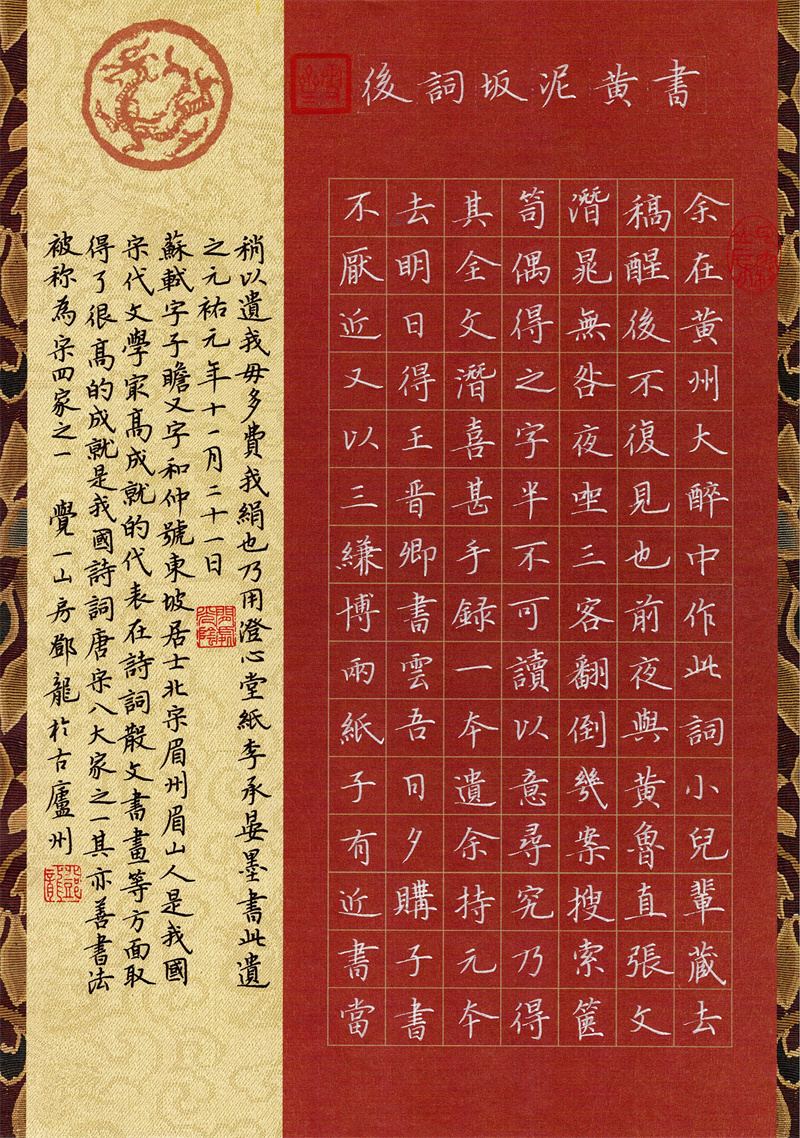 書黄泥坂詞後
余在黄州大醉中作此詞小兒輩藏去
稿醒後不復見也前夜與黄魯直張文
潛晁無咎夜坐三客翻倒幾案搜索篋
笥偶得之字半不可讀以意尋究乃得
其全文潛喜甚手録一本遺余持元本
去明日得王晋卿書雲吾日夕購子書
不厭近又以三縑博兩紙子有近書當
稍以遺我毋多費我絹也乃用澄心堂紙李承晏墨書此遺
之元祐元年十一月二十一日
蘇軾字子瞻又字和仲號東坡居士北宋眉州眉山人是我國
宋代文學家高成就的代表在詩詞散文書畫等方面取
得了很高的成就是我國詩詞唐宋八大家之一其亦善書法
被称為宋四家之一 覺一山房鄧龍於古廬州